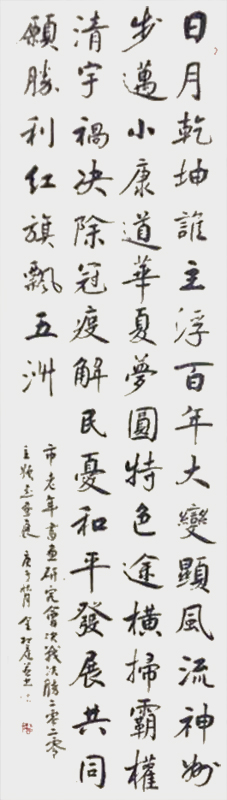 日月乾坤誰主浮百年大變顯風流神州
步邁小康道華夏夢圓特色途橫掃霸權
清宇禍决除冠疫解民憂和平發展共同
願勝利红旗飄五洲
市老年書画研究會决戰决勝二零二零
主 庚子 月